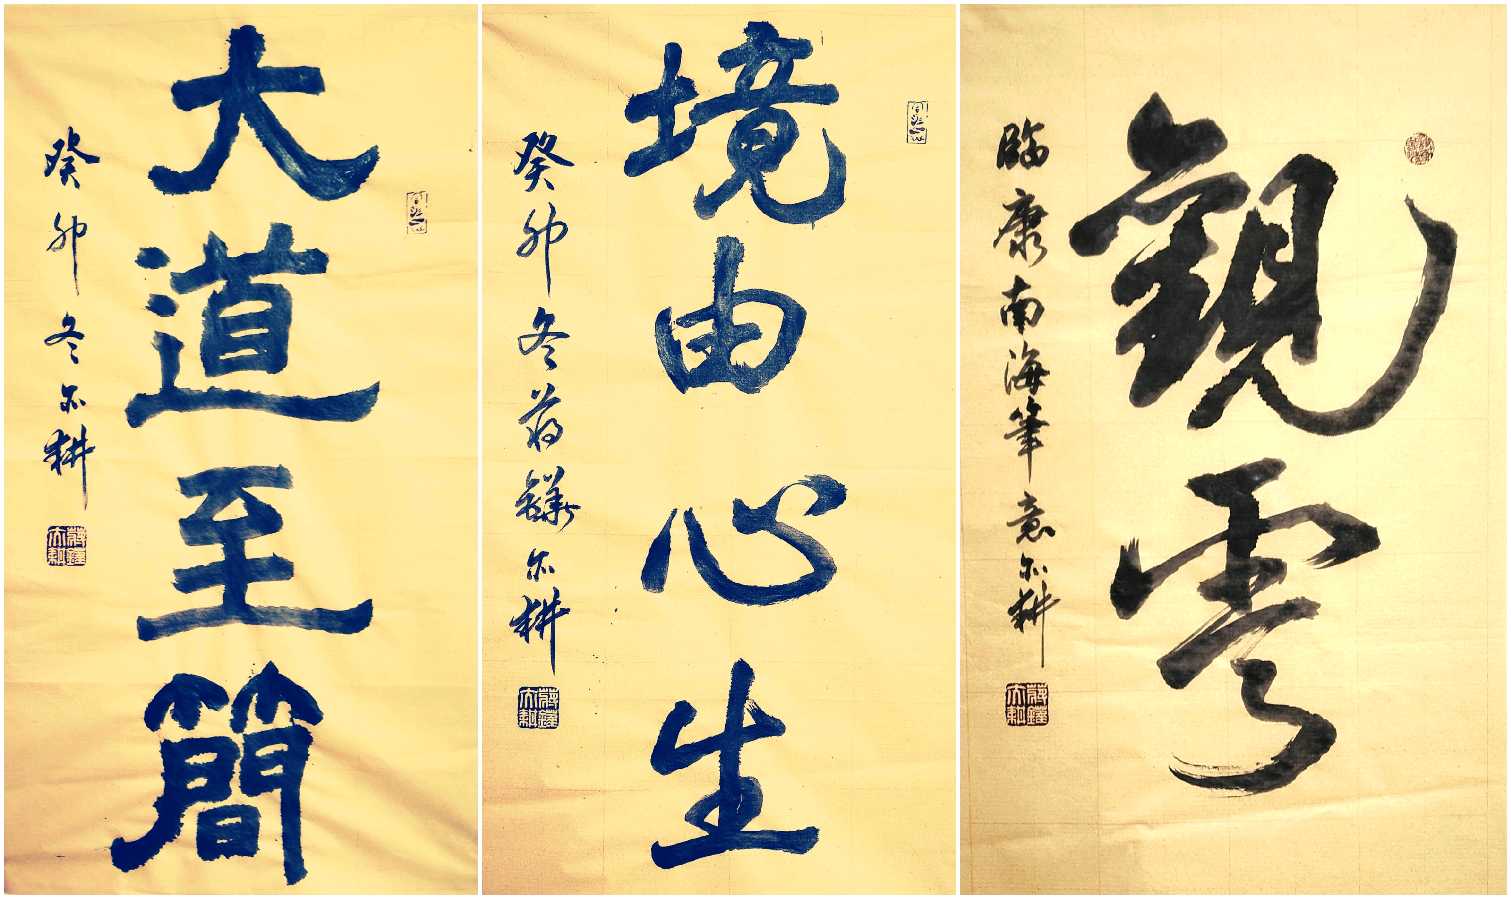 大道至簡
癸卯冬亦耕
境由心生
癸卯冬蒋亦耕
觀雲
臨康南海筆意亦耕